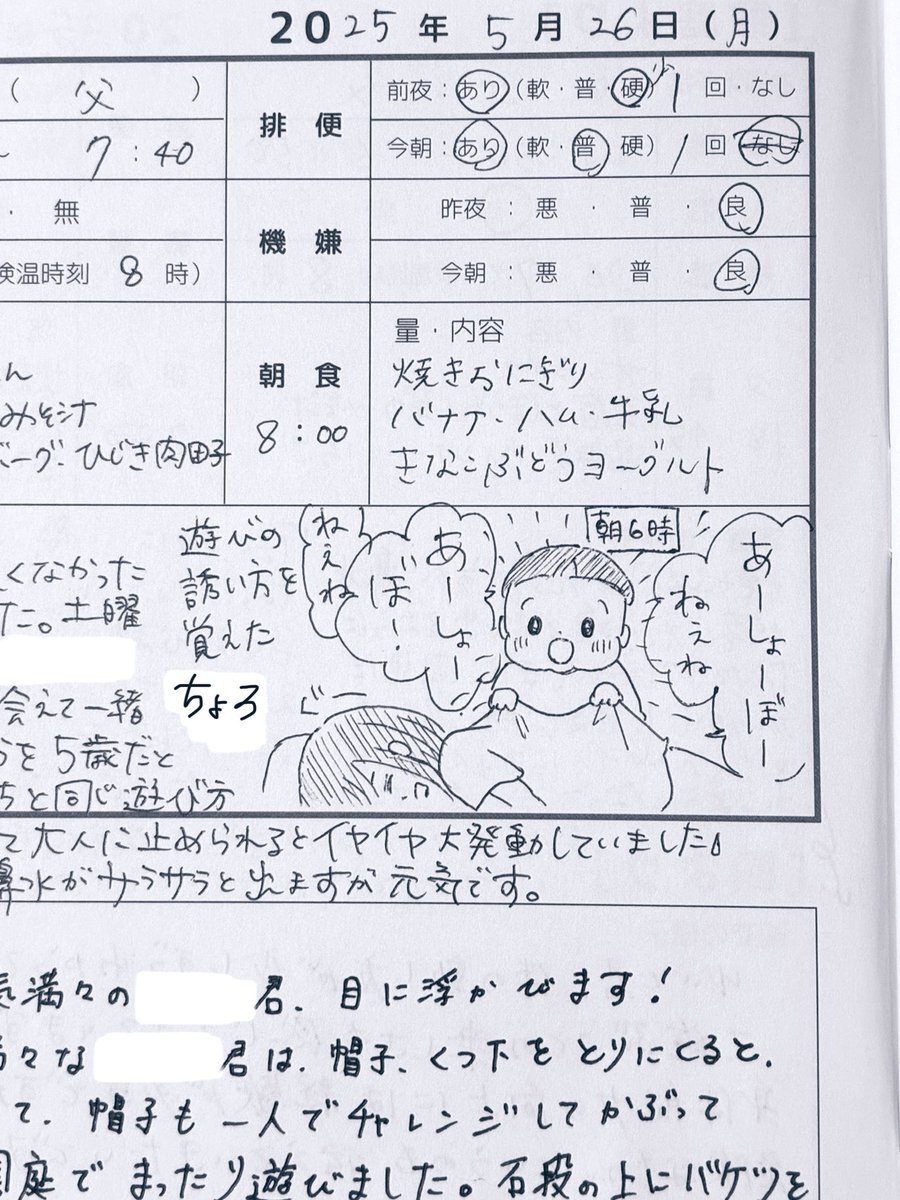 2025年 5月26日(月)
( 父 )
排便
前夜：あり（軟・普・硬）少 1 回・なし
7:40
今朝：あり（軟・普 硬）1 回 なし
・ 無
機嫌
昨夜：悪 ・ 普 ・ 良
検温時刻 8 時)
今朝：悪 普 良
朝食
8:00
量・内容
焼きおにぎり
バナナ・ハム・牛乳
きなこぶどうヨーグルト
ん
みそ汁
バーグ・ひじき肉団子
くなかった
た。土曜
会えて一緒
うを5歳だと
ちと同じ遊び方
遊びの
誘い方を
覚えた
ちょろ
ねぇね
あーしょー
ぼー！
朝6時
あーしょーぼー
ねぇね
ぐー
て大人に止められるとイヤイヤ大発動していました♪
鼻水がサラサラと出ますが元気です。
気満々の 君、目に浮かびます！
満々な 君は、帽子、くつ下をとりにくると、
て、帽子も一人でチャレンジしてかぶって
園庭でまったり遊びました。石段の上にバケツを